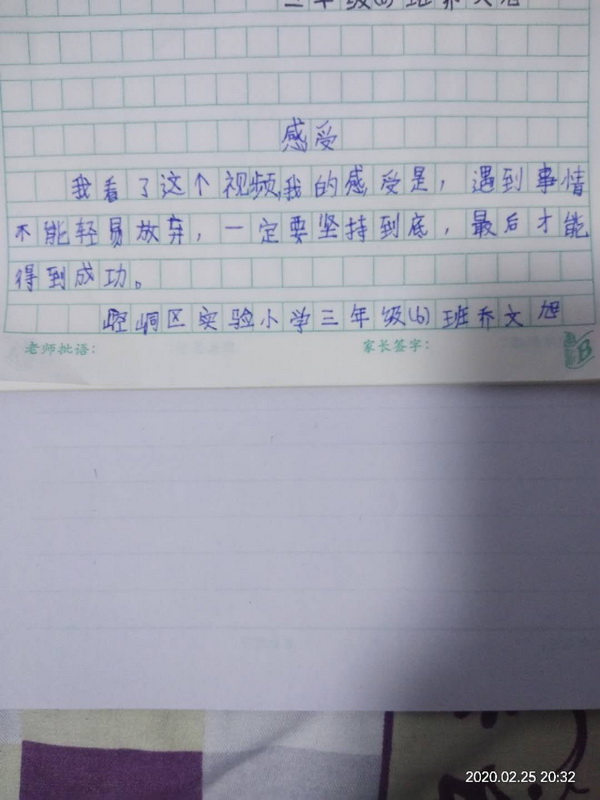 三年级(6)班乔文旭
感受
我看了这个视频,我的感受是，遇到事情
不能轻易放弃，一定要坚持到底，最后才能
得到成功。
崆峒区实验小学三年级(6)班乔文旭
老师批语： 家长签字：
B
2020.02.25 20:32